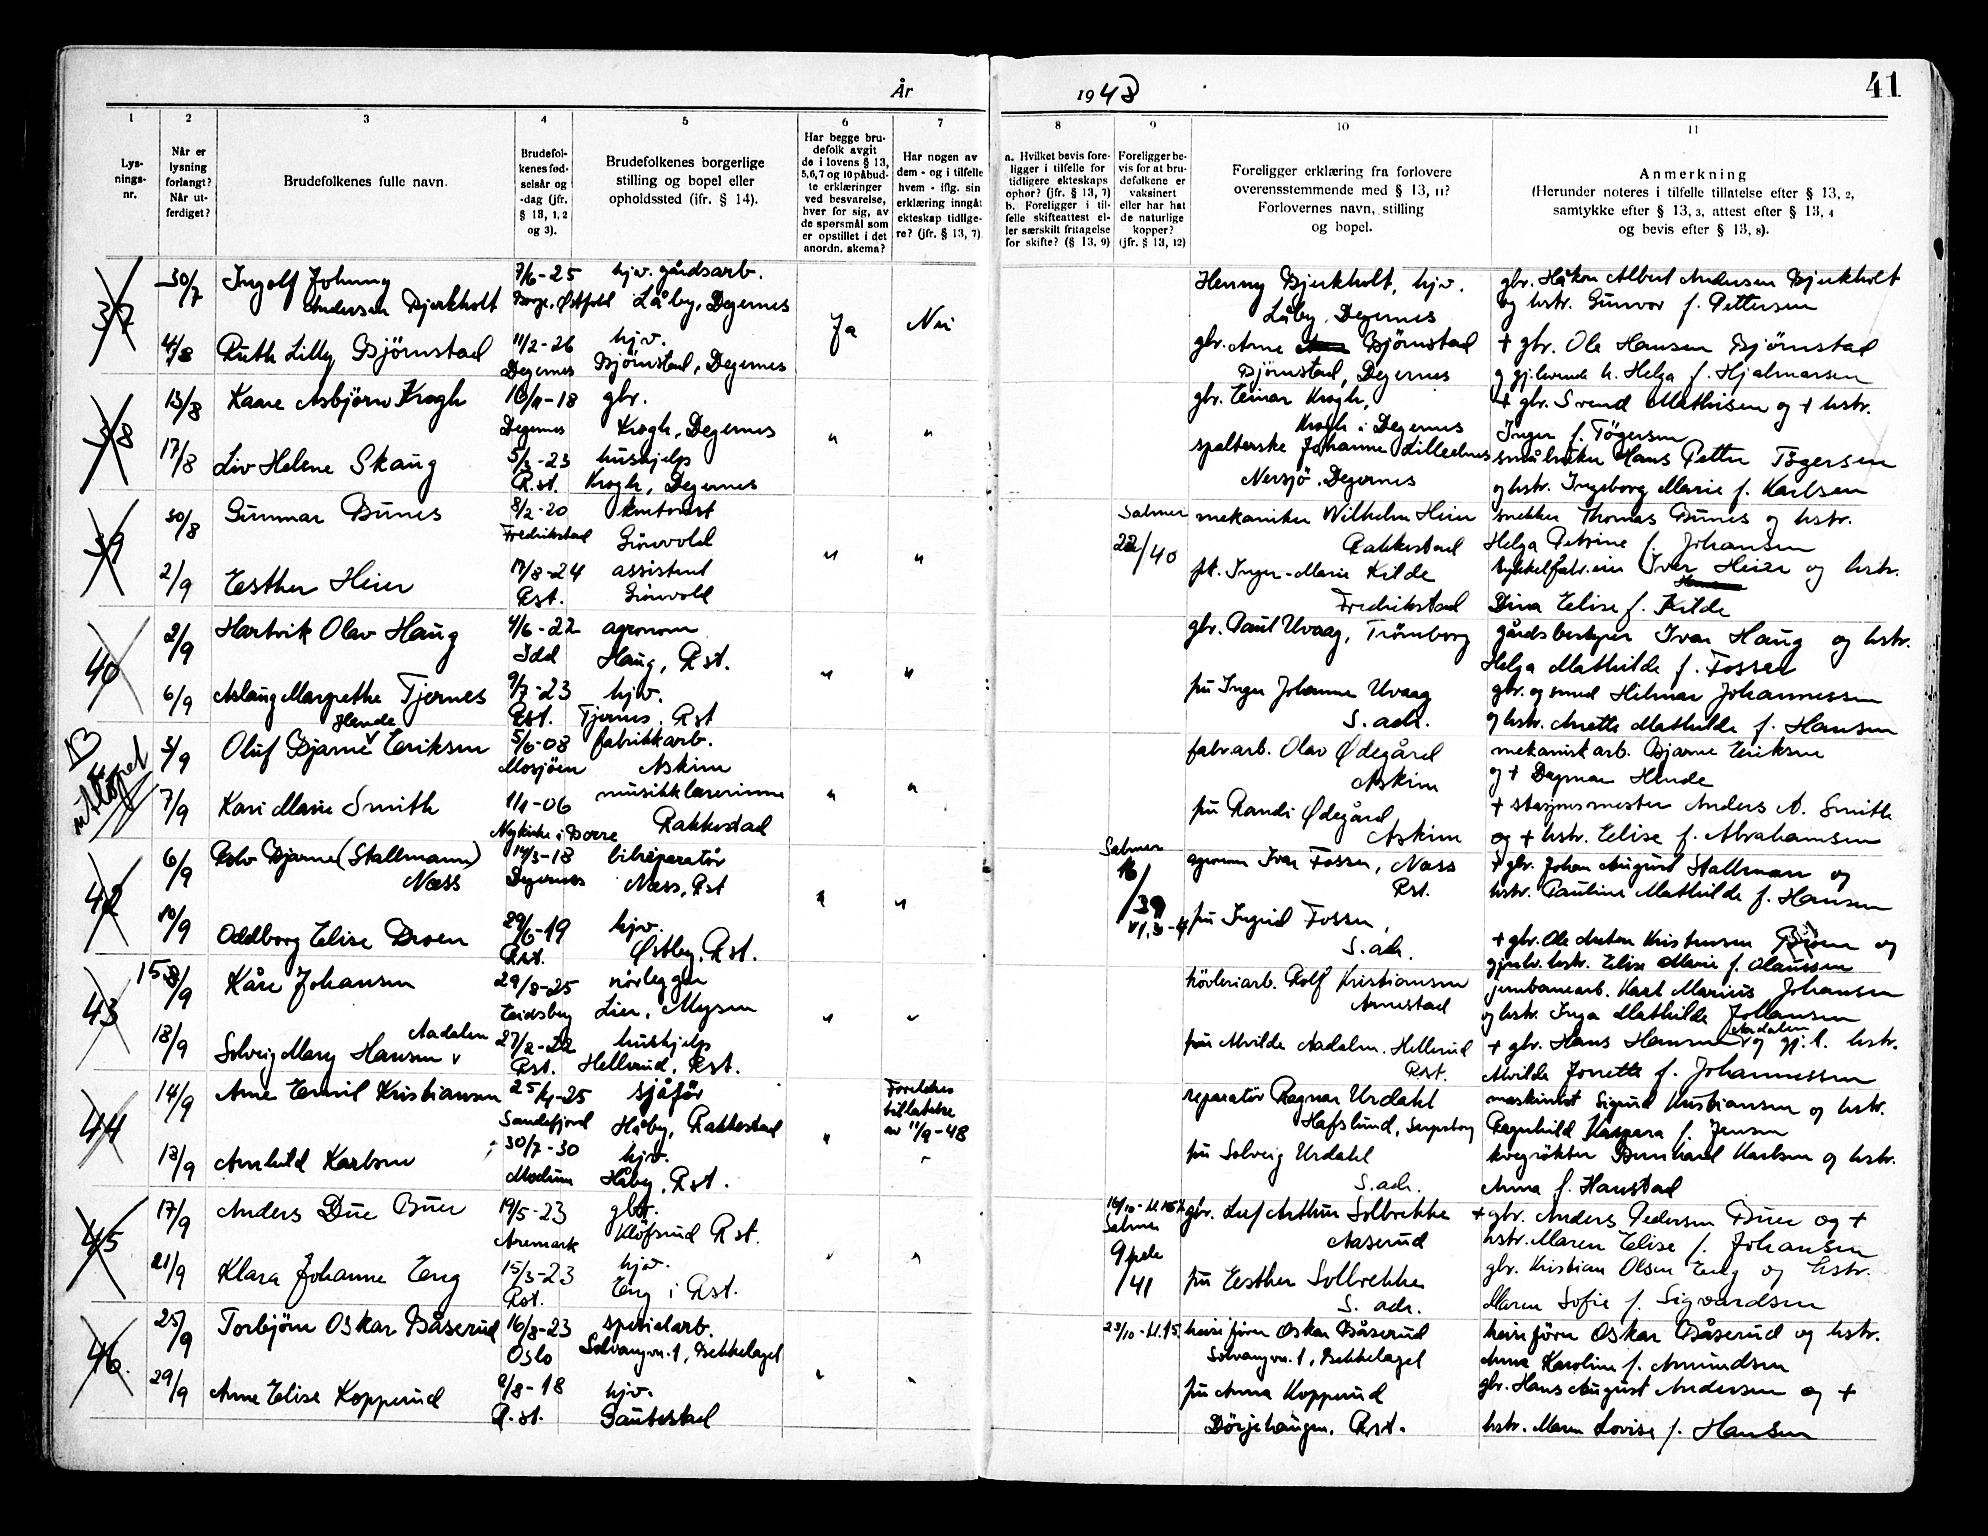 År
1948
41
1
2
3
4
5
6
7
8
9
10
11
Lys-
nings-
nr.
Når er
lysning
forlangt?
Når ut-
ferdiget?
Brudefolkenes fulle navn.
Brudefol-
kenes fød-
selsår og
-dag (jfr.
§ 13, 1, 2
og 3).
Brudefolkenes borgerlige
stilling og bopel eller
opholdssted (ifr. § 14).
Har begge bru-
defolk avgit
de i lovens § 13,
5,6,7 og 10 påbud-
te erklæringer
ved besvarelse,
hver for sig, av
de spørsmål som
er opstillet i det
anordn. skema?
Har nogen av
dem - og i tilfelle
hvem - iflg. sin
erklæring inngått
ekteskap tidlige-
re? (jfr. § 13, 7)
a. Hvilket bevis fore-
ligger i tilfelle for
tidligere ekteskaps
ophør? (jfr. § 13, 7)
b. Foreligger i til-
felle skifteattest el-
ler særskilt fritagelse
for skifte? (§ 13, 9)
Foreligger be-
vis for at bru-
defolkene er
vaksinert
eller har hat
de naturlige
kopper?
(jfr. § 13, 12)
Foreligger erklæring fra forlovere
overensstemmende med § 13, 11?
Forlovernes navn, stilling
og bopel.
Anmerkning
(Herunder noteres i tilfelle tillatelse efter § 13, 2,
samtykke efter § 13, 3, attest efter § 13, 4
og bevis efter § 13, 8).
37
30/7 Ingolf Johnny 7/6-25 hjv. gårdsarb. Henny Bjerkholt, hjv. gbr. Håkon Albert Andersen Bjerkholt
Andersen Bjerkholt Borge, Østfold Låby, Degernes Ja Nei Låby, Degernes og hstr. Gunvor f. Pettersen
4/8 Ruth Lilly Bjørnstad 11/2-26 hjv. gbr. Arne Bjørnstad + gbr. Ole Hansen Bjørnstad
Degernes Bjørnstad, Degernes Bjørnstad, Degernes og gj.levende h. Helga f. Hjalmarsen
38
13/8 Kaare Asbjørn Krogh -18 gbr. gbr. Einar Krogh, + gbr. Svend Mathisen og + hstr.
Degernes Krogh, Degernes " " Krogh i Degernes Inger f. Tøgersen
17/8 Liv Helene Skaug 5/3-23 hushjelp Johanne Lilleelnes småbruker Hans Petter Tøgersen
R.st. Krogh, Degernes Nersjø, Degernes og hstr. Ingeborg Marie f. Karlsen
39
30/8 Gunnar Bunes 8/2-20 kontorist Salmer mekaniker Wilhelm Heier snekker Thomas Bunes og hstr.
Fredrikstad Grønvold " " 22/40 Rakkestad Helga Petrine f. Johansen
2/9 Esther Heier 17/8-24 assistent frk. Inger-Marie Kilde Iver Heier og hstr.
Rst. Grønvold Fredrikstad Dina Elise f. Kilde
40
2/9 Hartvik Olav Haug 4/6-22 agronom gbr. Paul Uvaag, Trømborg gårdsbestyrer Ivar Haug og hstr.
Idd Haug, Rst. " " Helga Mathilde f. Fosser
6/9 Aslaug Margrethe Tjernes 9/7-23 hjv. fru Inger Johanne Uvaag gbr. og smed Hilmar Johannessen
Rst. Tjernes, Rst S. adr. og hstr. Anette Mathilde f. Hansen
B
utstøpet
5/9 Oluf Bjarne Hende Eriksen 5/6-08 fabrikkarb. fabr.arb. Olav Ødegård mekanisk arb. Bjarne Eriksen
Mosjøen Askim " " Askim og + Dagmar Hende
7/9 Kari Marie Smith 1/1-06 musikklærerinne fru Randi Ødegård + stasjonsmester Anders A. Smith
Nykirke i Borre Rakkestad Askim og + hstr. Elise f. Abrahamsen
42
6/9 Rolv Bjarne (Stallmann) 14/3-18 bilreparatør Salmer agronom Ivar Fosser, Næss + gbr. Johan August Stallman og
Næss Degernes Næss, Rst " " 16/39 Rst. hstr. Pauline Mathilde f. Hansen
10/9 Oddborg Elise Broen 29/6-19 hjv. fru Ingrid Fosser, + gbr. Ole Anton Kristensen Broen og
Rst. Østby, Rst. S. adr. gjenlv. hstr. Elise Marie f. Olaussen
43
15/9 Kåre Johansen 29/8-25 rørlegger høvleriarb. Rolf Kristiansen jernbanearb. Karl Marius Johansen
Eidsberg Lier, Mysen " " Arnestad og hstr. Inga Mathilde Johansen
18/9 Solveig Mary Hansen Aadalen 27/2-22 hushjelp fru Alvilde Aadalen, Hellerud + gbr. Hans Hansen Aadalen og gj.l. hstr.
Rst. Hellerud, Rst. Rst. Alvilde Jonette f. Johannessen
44
14/9 Arne Emil Kristiansen 25/4-25 sjåfør Foreldres reparatør Ragnar Urdahl maskinist Sigurd Kristiansen og hstr.
Sandefjord Håby, Rakkestad " tillatelse av 11/9-48 Hafslund, Sarpsborg Ragnhild Kaspara f. Jensen
18/9 Arnhild Karlsen 30/7-30 hjv. fru Solveig Urdahl kvegrøkter Bernhard Karlsen og hstr.
Modum Håby, Rst. S. adr. Anna f. Hanstad
45
17/9 Anders Due Buer 19/5-23 gbr. Salmer gbr. Leif Arthur Solbrekke + gbr. Anders Pedersen Buer og +
Aremark Kløfsrud Rst. " " Aaserud hstr. Maren Elise f. Johansen
21/9 Klara Johanne Eng 15/3-23 hjv. /41 fru Esther Solbrekke gbr. Kristian Olsen Eng og hstr.
Rst. Eng i Rst. S. adr. Maren Sofie f. Sigvardsen
46.
25/9 Torbjørn Oskar Båserud 16/8-23 spesialarb. 23/10 heisefører Oskar Båserud heisefører Oskar Båserud og hstr.
Oslo Solvangvn. 1, Bekkelaget " " Solvangvn. 1, Bekkelaget Anna Karoline f. Amundsen
29/9 Anne Elise Kopperud 9/8-18 hjv. fru Anna Kopperud gbr. Hans August Andersen og +
R.st. Gautestad Børjehaugen, Rst. hstr. Maren Lovise f. Hansen